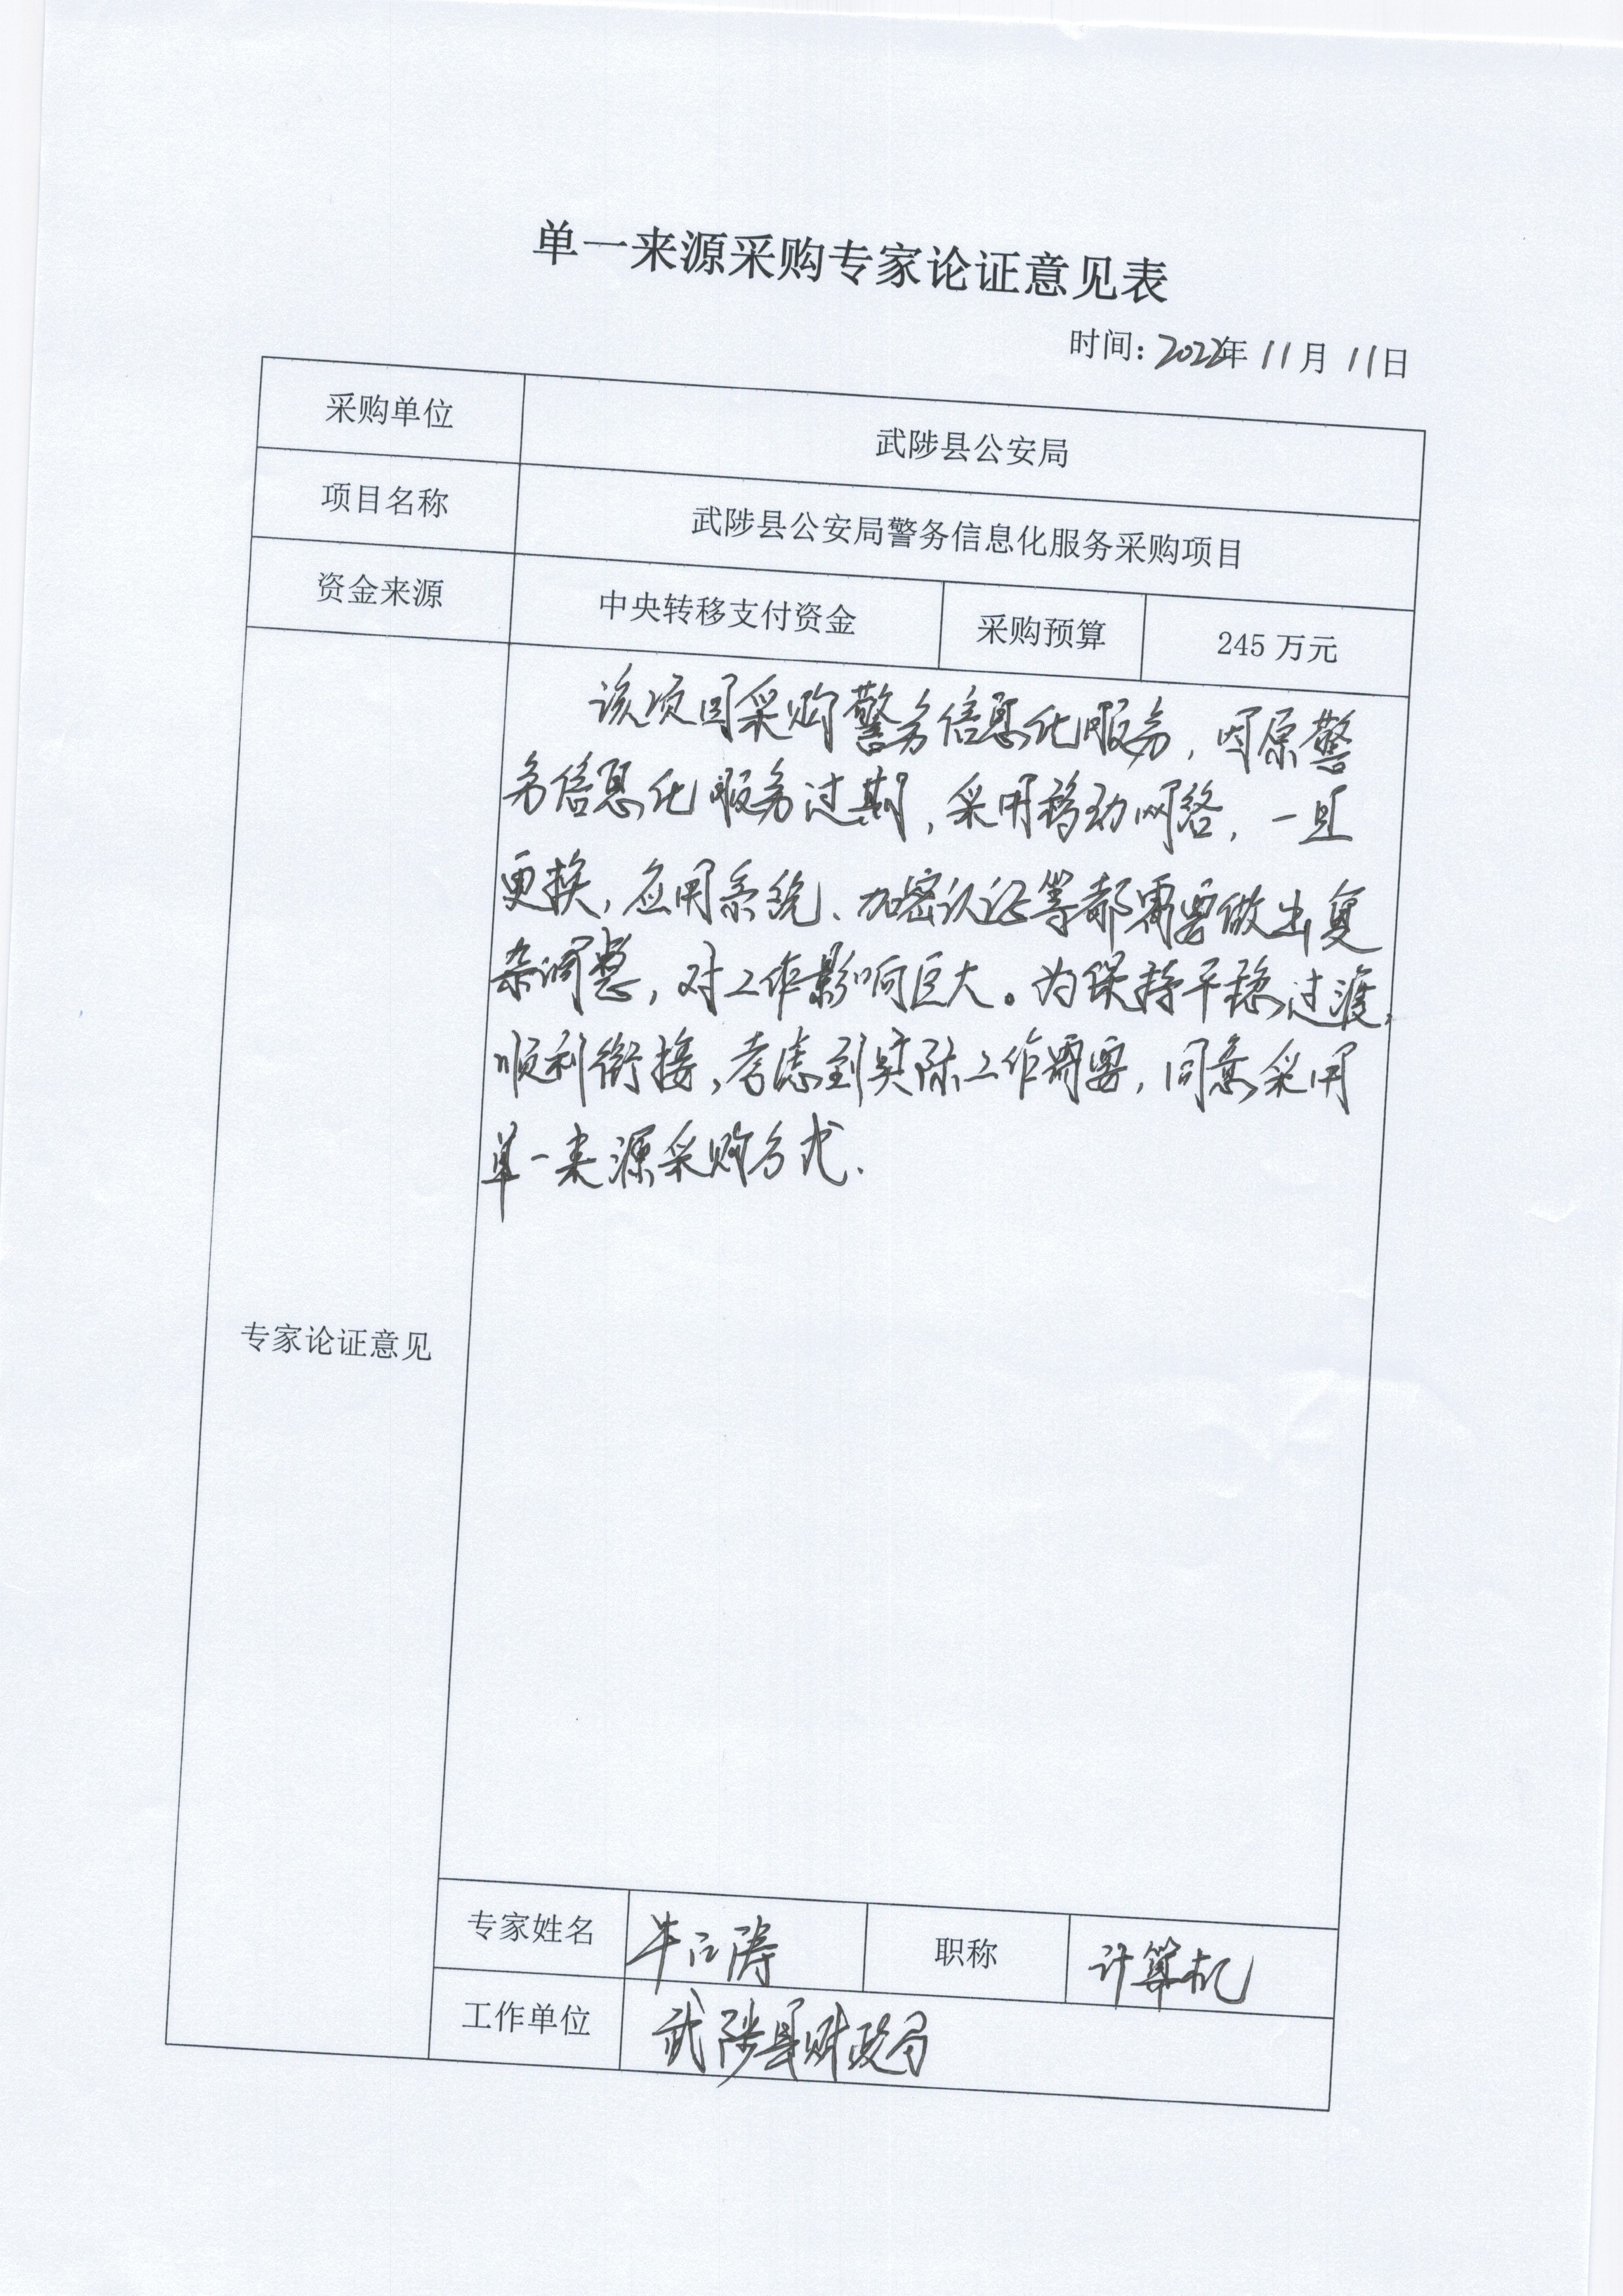 单一来源采购专家论证意见表
时间：2022年 11月 11日
采购单位 武陟县公安局
项目名称 武陟县公安局警务信息化服务采购项目
资金来源 中央转移支付资金 采购预算 245 万元
该项目采购警务信息化服务，因原警
务信息化服务过期，采用移动网络，一旦
更换，应用系统、加密认证等都需要做出复
杂调整，对工作影响巨大。为保持平稳过渡，
顺利衔接，考虑到实际工作需要，同意采用
单一来源采购方式.
专家论证意见
专家姓名 牛江涛 职称 计算机
工作单位 武陟县财政局